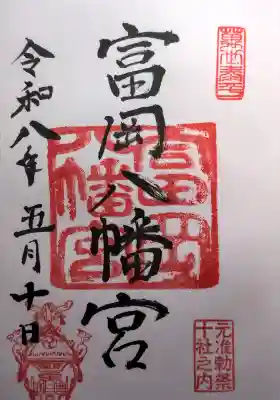 萬世泰平
元准勅祭
十社之内
富岡八幡宮
富岡
八幡宮
令和八年五月十日